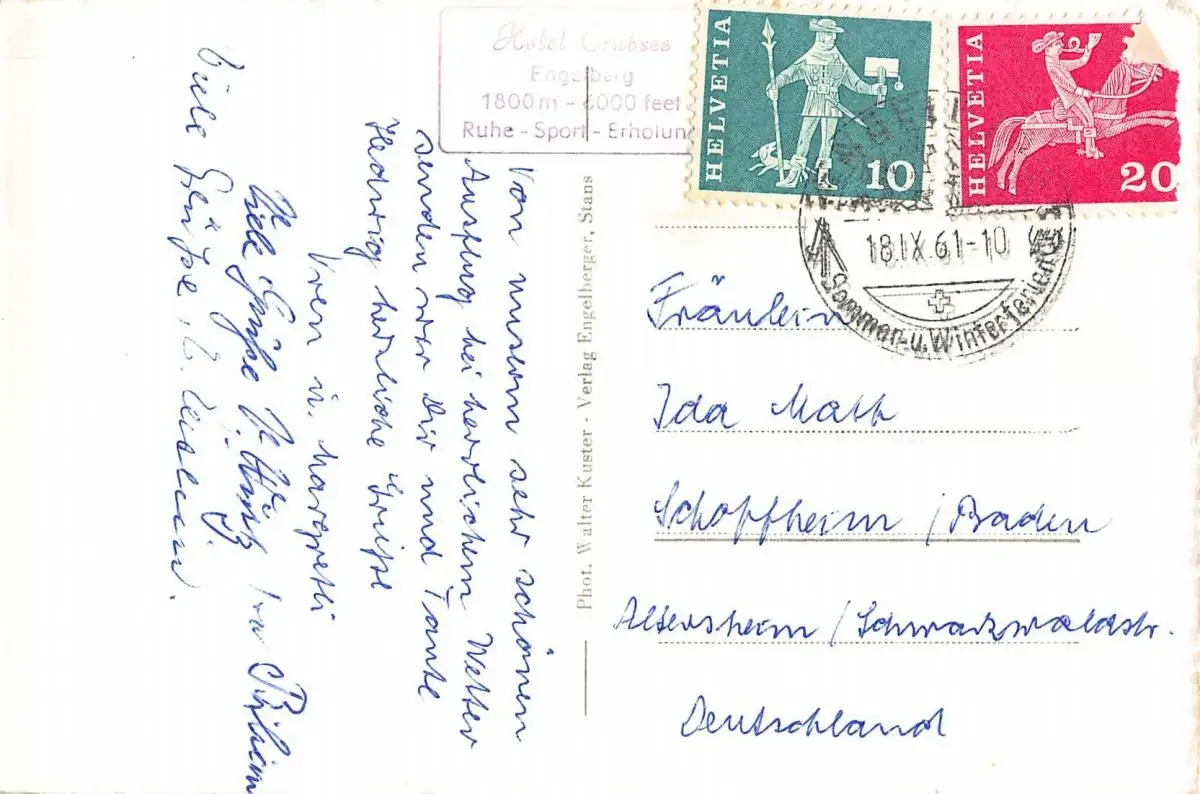 Hotel Trübsee
Engelberg
1800 m - 6000 feet
Ruhe - Sport - Erholung
HELVETIA
10
HELVETIA
20
18.IX.61-10
Sommer- u. Winterferien
Von unserm sehr schönen
Ausflug bei herrlichem Wetter
senden wir Dir und Tante
Hedwig herzliche Grüsse
Vreni u. Margretli
Viele Grüsse
Viele Grüsse
Phot. Walter Kuster - Verlag Engelberger, Stans
Fräulein
Ida Matt
Schopfheim / Baden
Altersheim / Schwarzwaldstr.
Deutschland